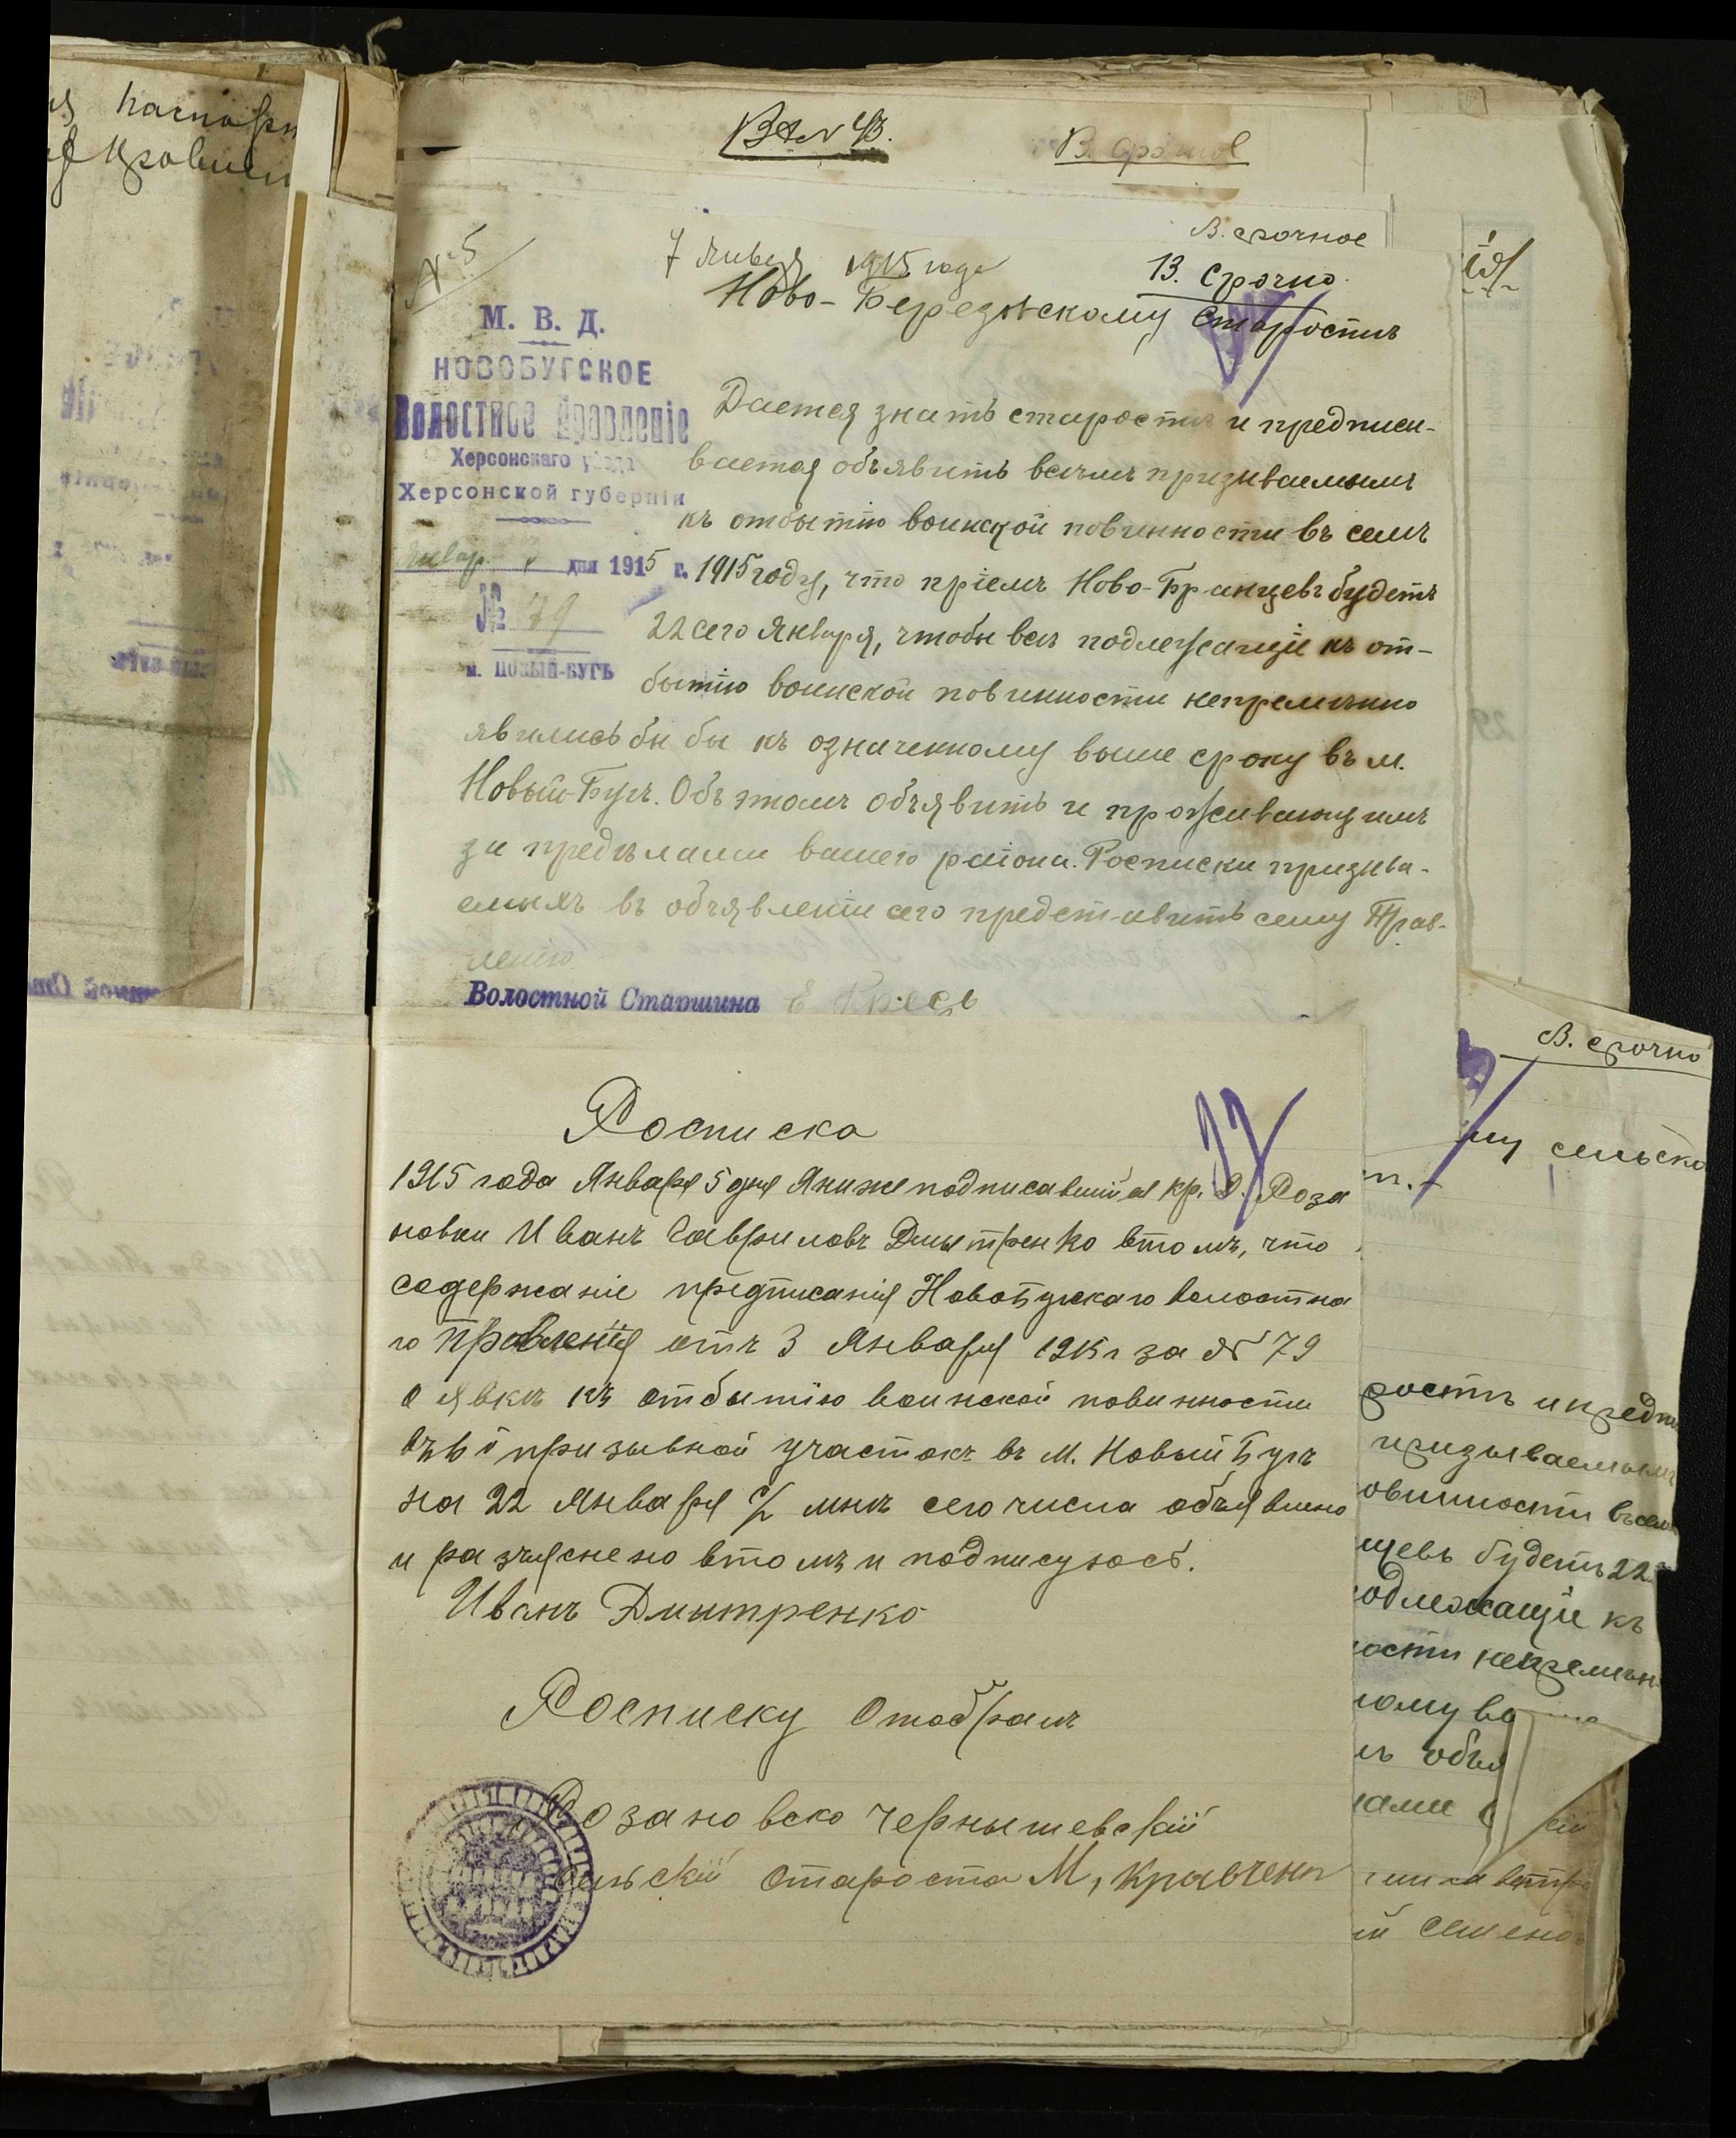 В. срочное
№ 5
7 Января 1915 года
В. Срочно.
Ново-Березовскому Старостѣ
М. В. Д.
НОВОБУГСКОЕ
Волостное Правленіе
Херсонскаго уѣзда
Херсонской губерніи
Январ. дня 1915 г.
№ 79
м. НОВЫЙ-БУГЪ
Дается знать старостѣ и предписы-
вается объявить всѣмъ призываемымъ
къ отбытію воинской повинности въ семъ
1915 году, что пріемъ Ново-Бранцевъ будетъ
22 сего Января, чтобы всѣ подлежащіе къ от-
бытію воинской повинности непремѣнно
явились бы бы къ означенному выше сроку въ м.
Новый-Бугъ. Объ этомъ объявить и проживающимъ
за предѣлами вашего раіона. Росписки призыва-
емыхъ въ объявленіи сего представить сему Прав-
ленію
Волостной Старшина
Росписка
1915 года Января 5 дня Я нижеподписавшійся кр. д. Роза
новки Иванъ Гавриловъ Дмытренко втомъ, что
содержаніе предписанія Новобугскаго волостна
го Правленія отъ 3 Января 1915 г за № 79
о явкѣ къ отбытію воинской повинности
въ 6й призывной участокъ въ м. Новый Бугъ
на 22 Января с/г мнѣ сего числа объявлено
и разъяснено втомъ и подписуюсь.
Иванъ Дмитренко
Росписку Отобралъ
Розановско Чернышевскій
Сельскій Староста М, Кравчен
В. срочно
му сельско
рость и предпи
призываемымъ
овинности въ сем
цевъ будетъ 22
одлежащіе къ
ности непремѣн
ному вы
объя
лами